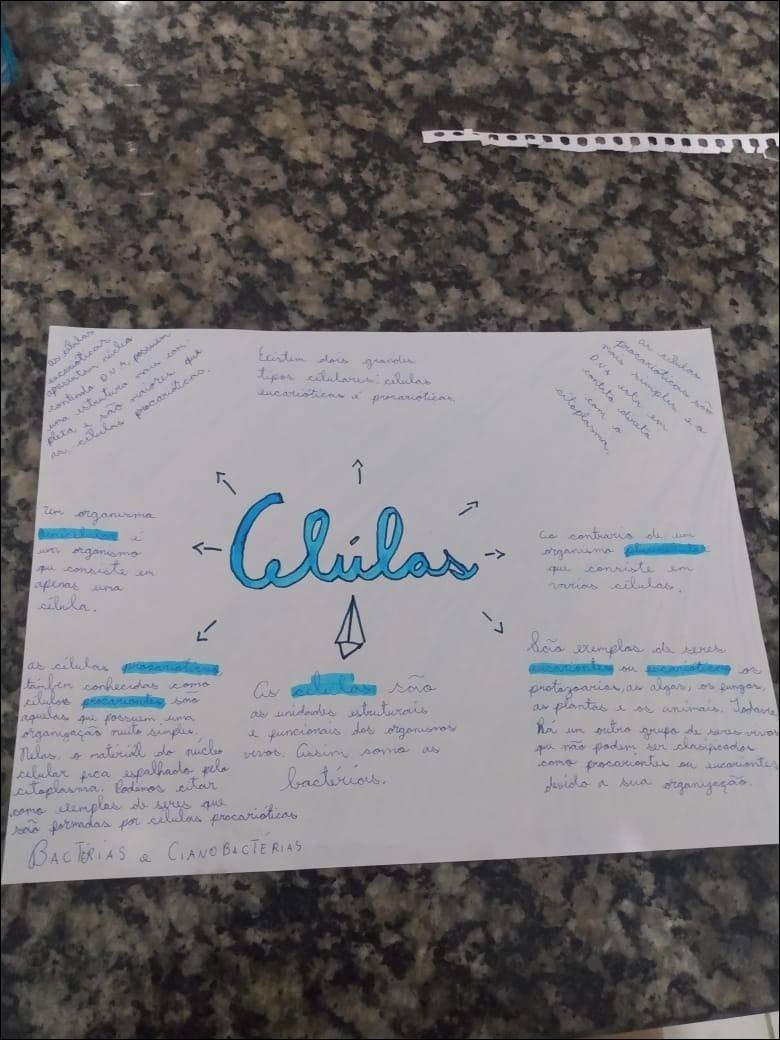 as células
eucarióticas
apresentam núcleo
contendo DNA, possuem
uma estrutura mais com-
pleta e são maiores que
as células procarióticas.
Existem dois grandes
tipos celulares: células
eucarióticas e procarióticas.
as células
procarióticas são
mais simples e o
DNA está em
contato direto
com o
citoplasma.
Células
Um organismo
unicelular é
um organismo
que consiste em
apenas uma
célula.
Ao contrário de um
organismo pluricelular
que consiste em
varias células.
as células procarióticas,
também conhecidas como
células procariontes são
aquelas que possuem uma
organização muito simples.
Nelas, o material do núcleo
celular fica espalhado pelo
citoplasma. Podemos citar
como exemplos de seres que
são formadas por células procarióticas
BACTÉRIAS e CIANOBACTÉRIAS
As células são
as unidades estruturais
e funcionais dos organismos
vivos. Assim somo as
bactérias.
São exemplos de seres
eucariontes ou eucarióticos os
protozoarios, as algas, os fungos,
as plantas e os animais. Todavia
Há um outro grupo de seres vivos
que não podem ser clasificados
como procariontes ou eucariontes
devido a sua organização.